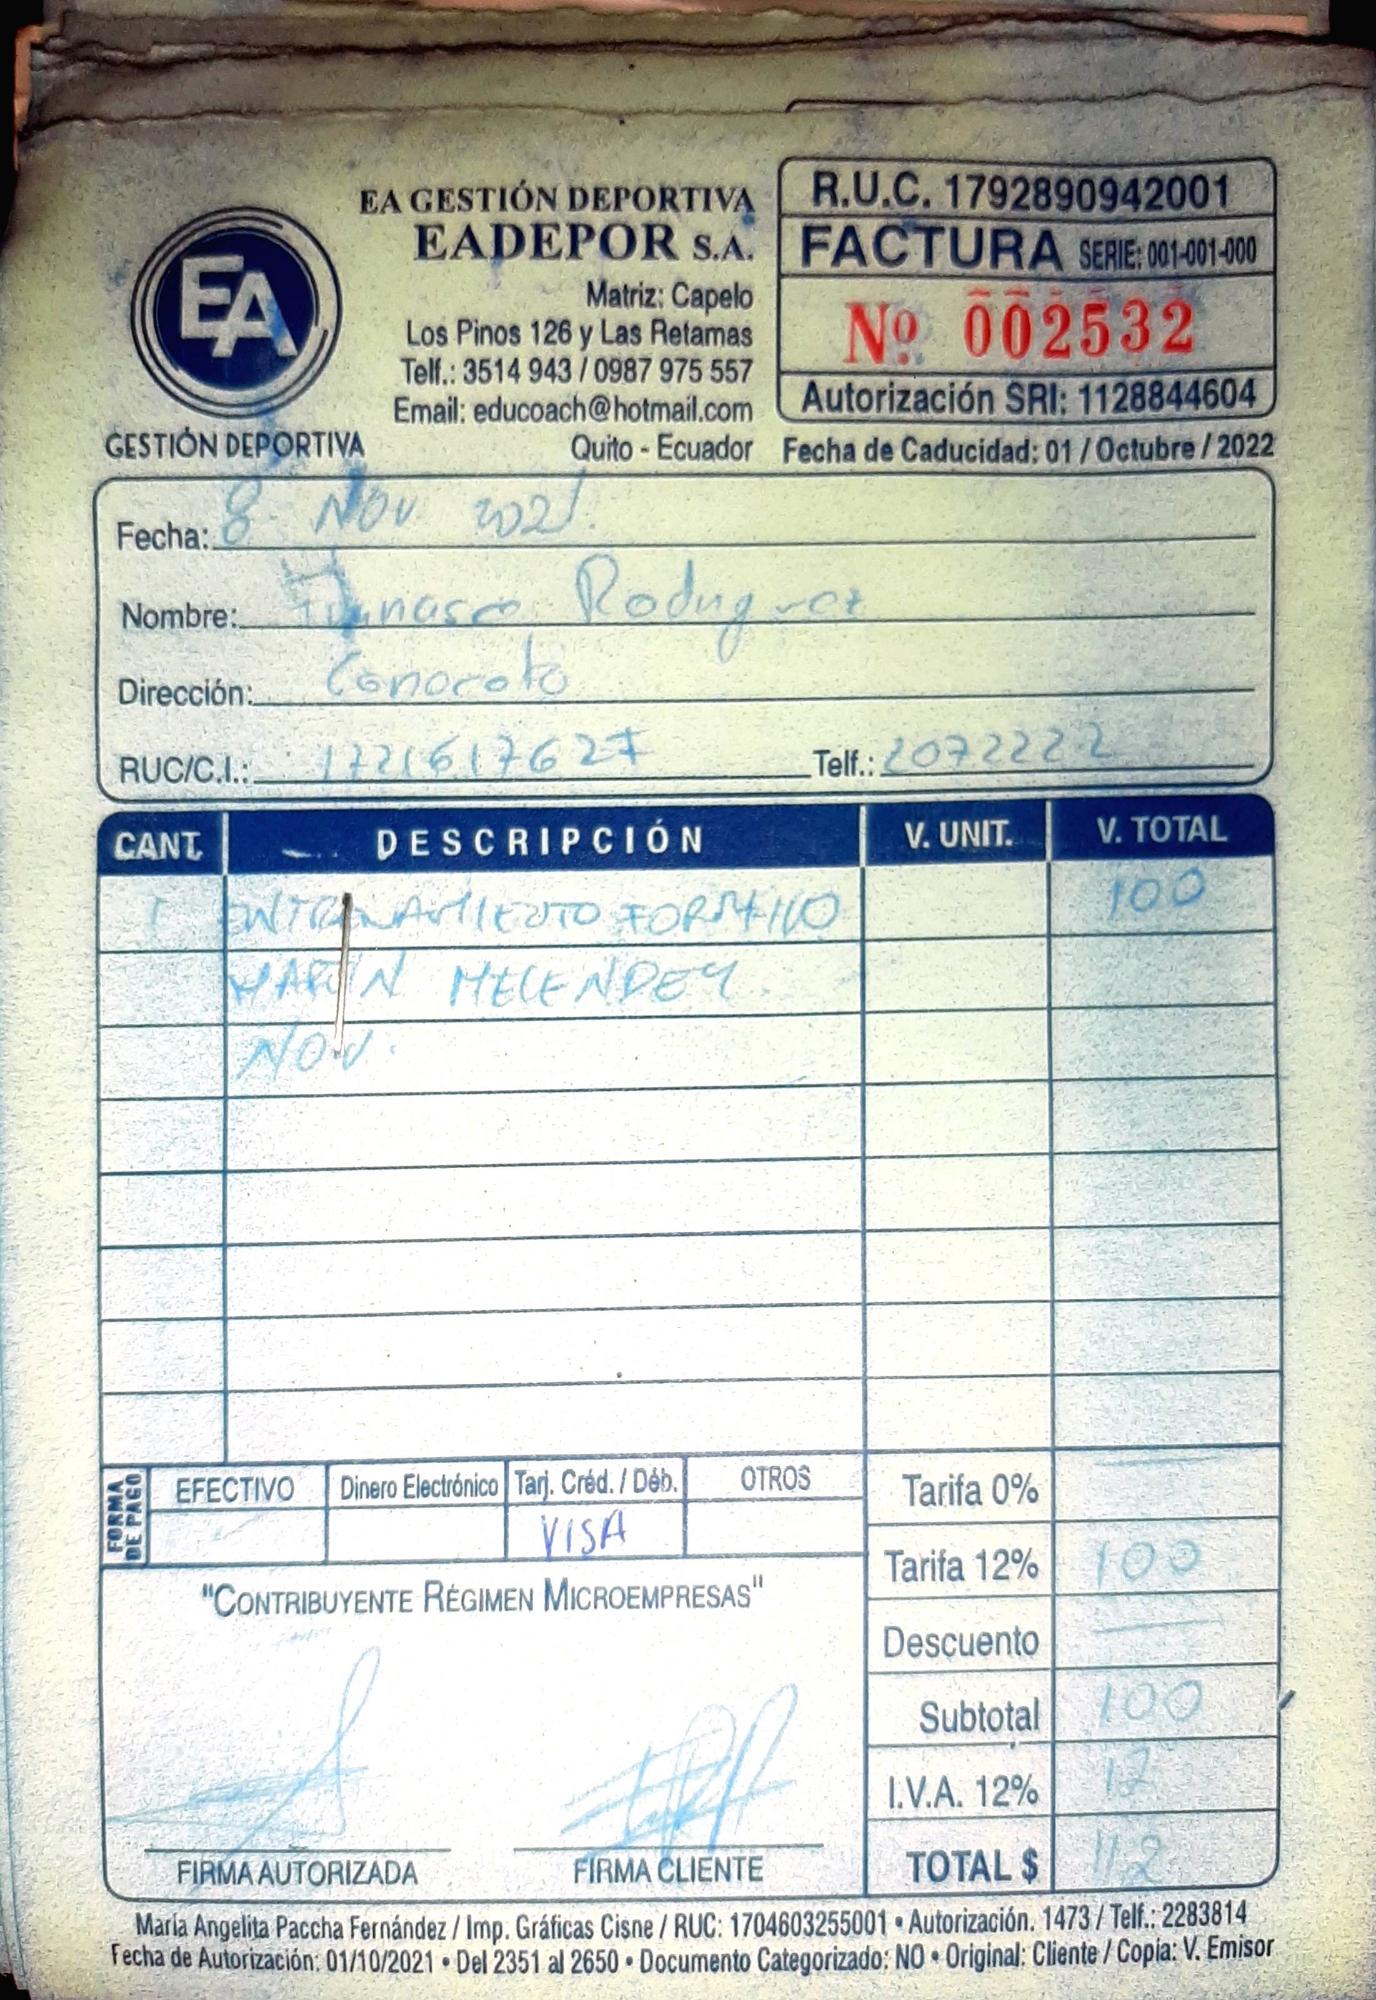 EA GESTIÓN DEPORTIVA
EADEPOR S.A.
Matriz: Capelo
Los Pinos 126 y Las Retamas
Telf.: 3514 943 / 0987 975 557
Email: educoach@hotmail.com
Quito - Ecuador
EA
GESTIÓN DEPORTIVA
R.U.C. 1792890942001
FACTURA SERIE: 001-001-000
Nº 002532
Autorización SRI: 1128844604
Fecha de Caducidad: 01 / Octubre / 2022
Fecha: 8 NOV 2021
Nombre: Rodriguez
Dirección: Conocoto
RUC/C.I.: 1721617627 Telf.: 2072222
CANT. DESCRIPCIÓN V. UNIT. V. TOTAL
1 ENTRENAMIENTO FORMATIVO 100
MARTIN MELENDEZ.
NOV.
FORMA DE PAGO
EFECTIVO Dinero Electrónico Tarj. Créd. / Déb. OTROS
VISA
"CONTRIBUYENTE RÉGIMEN MICROEMPRESAS"
Tarifa 0%
Tarifa 12% 100
Descuento
Subtotal 100
I.V.A. 12% 12
TOTAL $ 112
FIRMA AUTORIZADA FIRMA CLIENTE
María Angelita Paccha Fernández / Imp. Gráficas Cisne / RUC: 1704603255001 • Autorización. 1473 / Telf.: 2283814
Fecha de Autorización: 01/10/2021 • Del 2351 al 2650 • Documento Categorizado: NO • Original: Cliente / Copia: V. Emisor